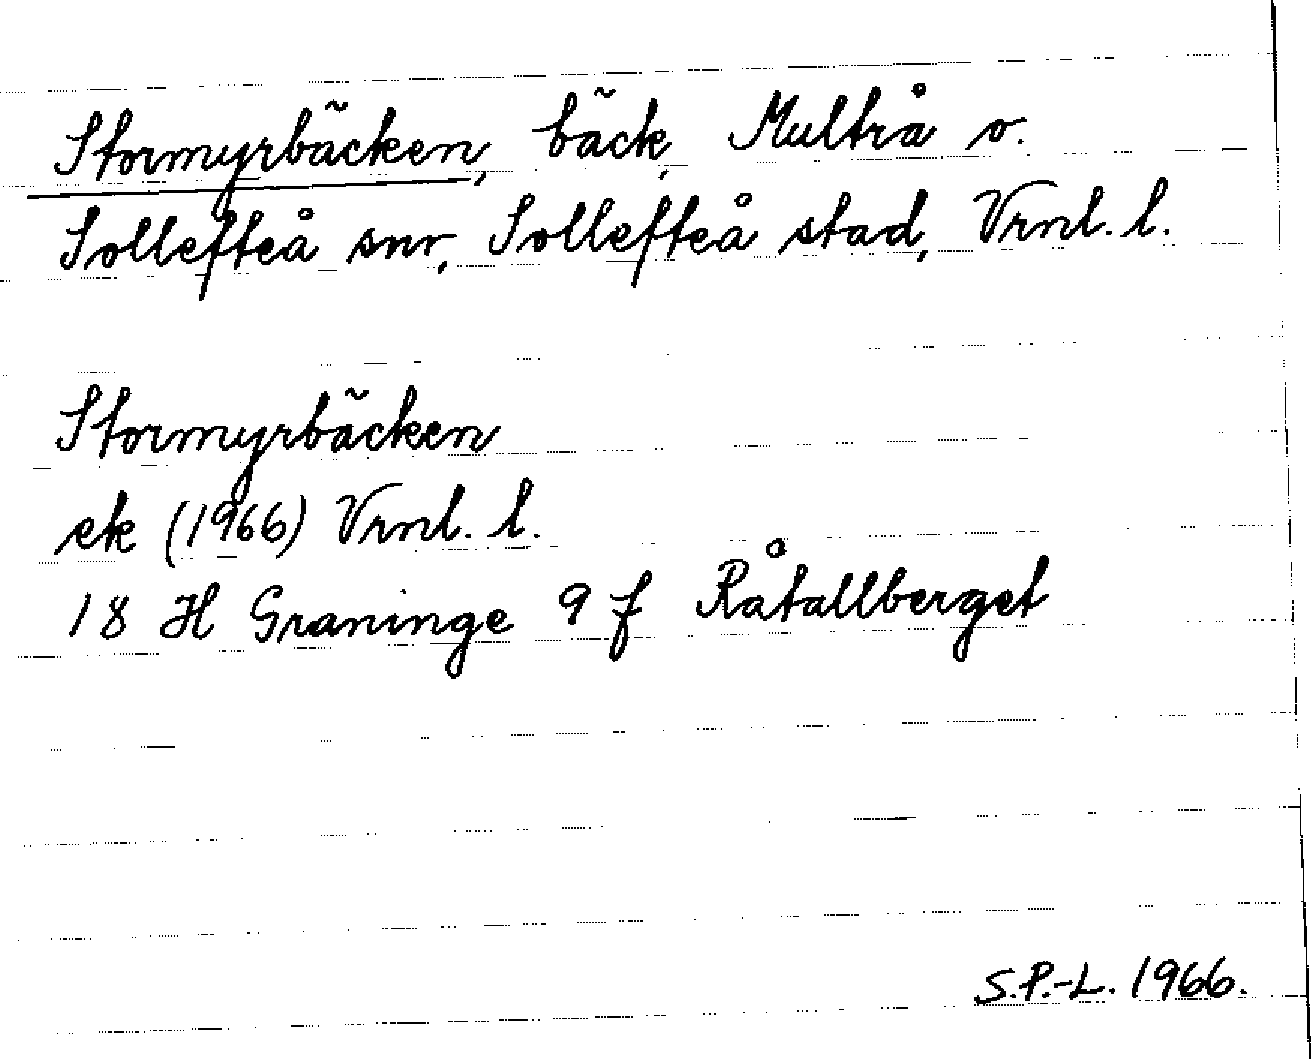 Stormyrbäcken, bäck, Multrå o.
Sollefteå snr, Sollefteå stad, Vrnl. l.
Stormyrbäcken
ek (1966) Vrnl. l.
18 H Graninge 9 f Råtallberget
S.P.-L. 1966.